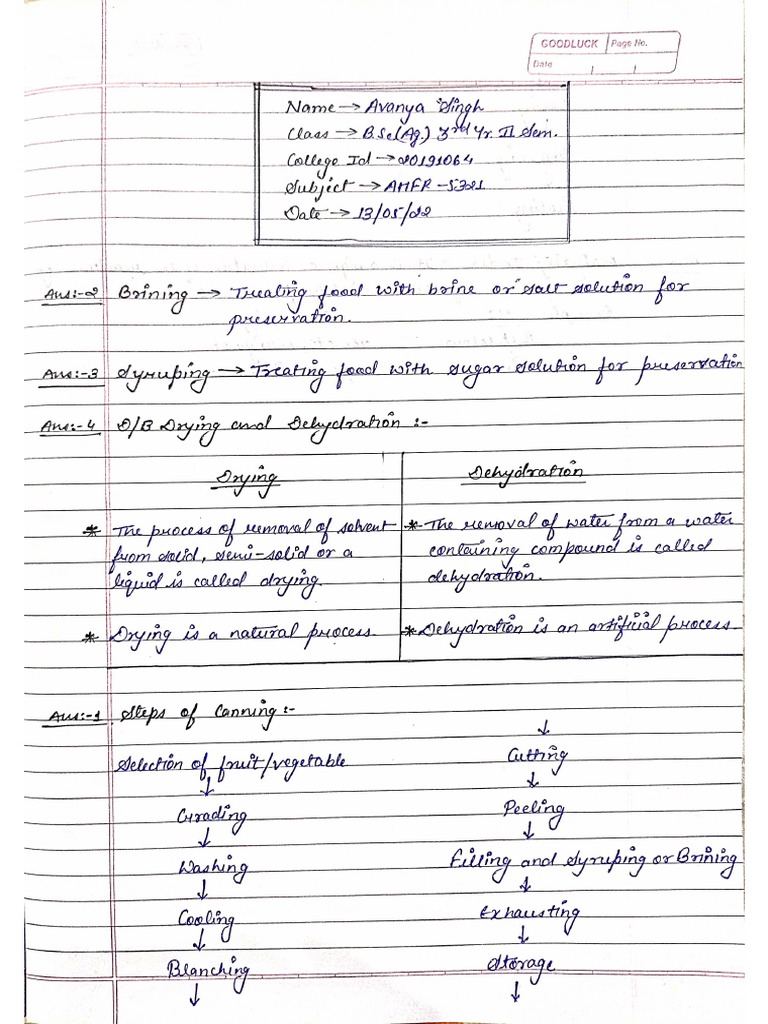 GOODLUCK Page No.
Date
Name → Avanya Singh
Class → B.Sc(Ag.) 3rd Yr. II Sem.
College Id → 20191064
Subject → AHFR - 5321
Date → 13/05/22
Ans:-2 Brining → Treating food with brine or salt solution for
preservation.
Ans:-3 Syruping → Treating food with sugar solution for preservation
Ans:-4 D/B Drying and Dehydration :-
Drying
* The process of removal of solvent
from solid, semi-solid or a
liquid is called drying.
* Drying is a natural process.
Dehydration
* The removal of water from a water
containing compound is called
dehydration.
* Dehydration is an artificial process.
Ans:-1 Steps of Canning :-
Selection of fruit/vegetable
↓
Grading
↓
Washing
↓
Cooling
↓
Blanching
↓
↓
Cutting
↓
Peeling
↓
Filling and Syruping or Brining
↓
Exhausting
↓
Storage
↓